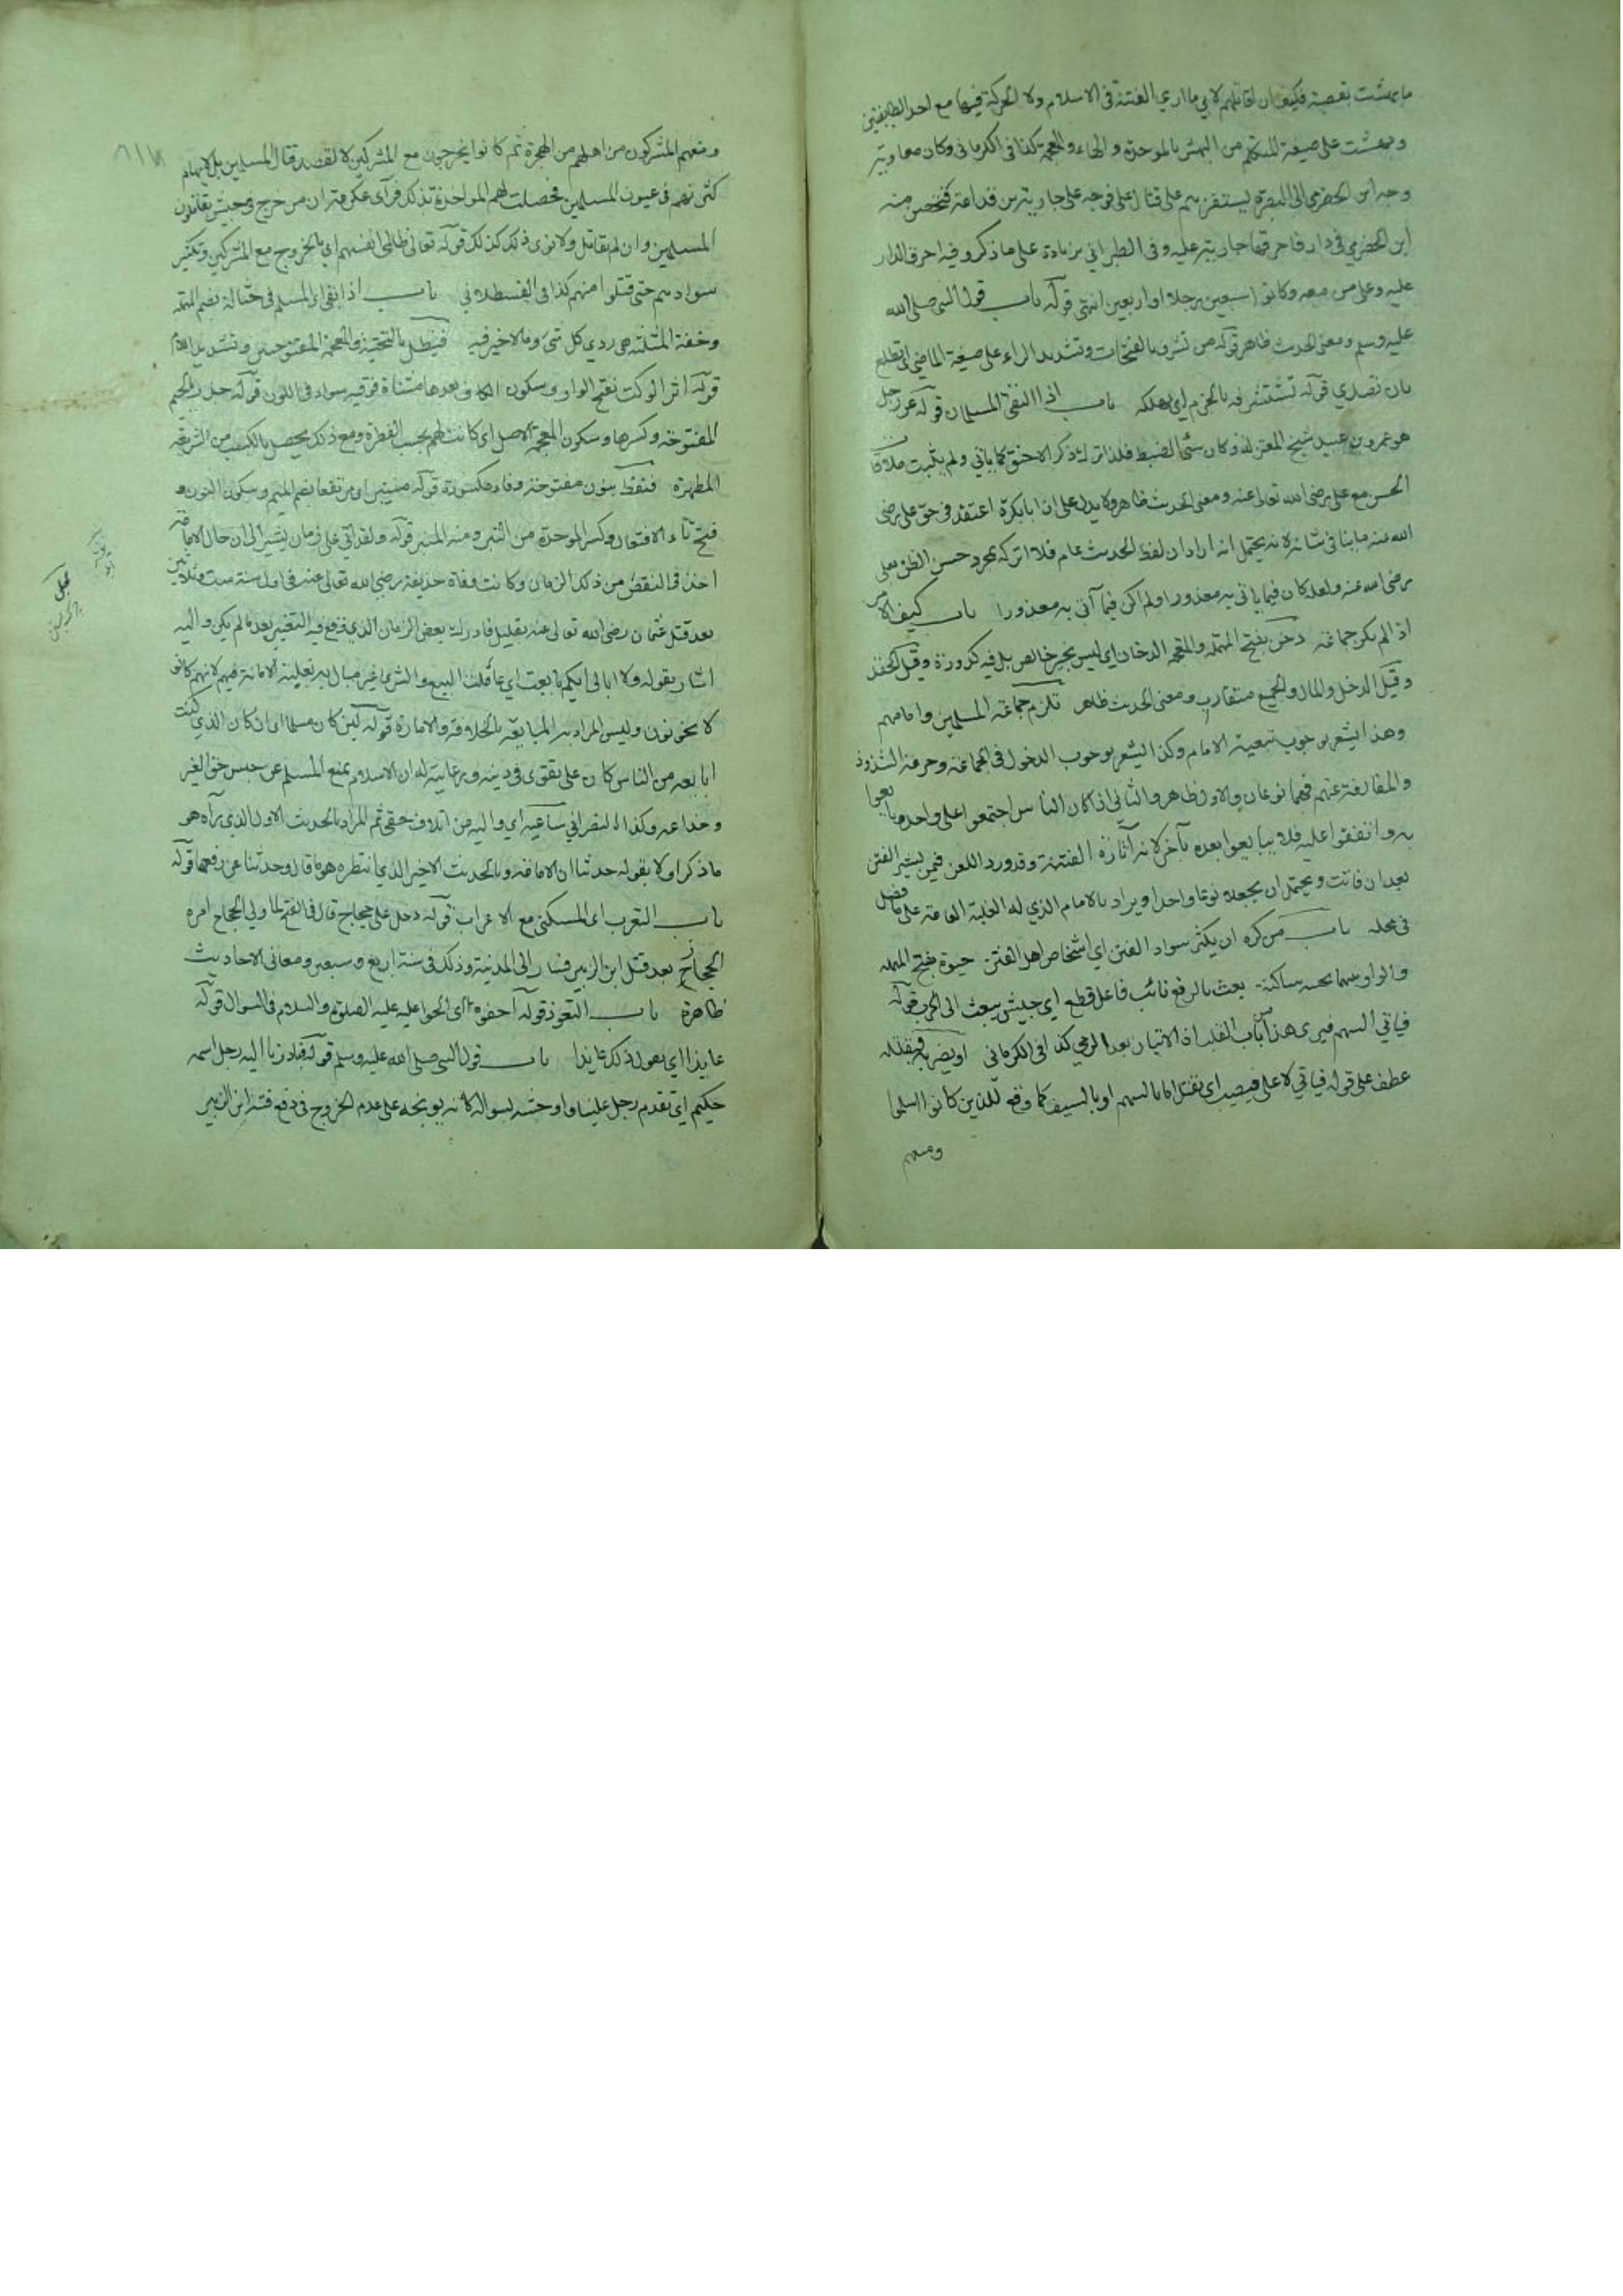 ما بهشت بقصبة فكيف ان اقاتلهم لاني ما اري الفتنة في الاسلام ولا الحركة فيها مع احد الطايفتين
وبهشت على صيغة المتكلم من البهش بالموحدة والهاء والمعجمة كذا في الكرماني وكان معاوية
وجه ابن الحضرمي الى البصرة ليستنفرهم على قتال علي فوجه علي جارية بن قدامة فتحصن منه
ابن الحضرمي في دار فاحرقها جارية عليه وفي الطبراني بزيادة على ما ذكر وفيه احرق الدار
عليه وعلى من معه وكانوا سبعين رجلا او اربعين انتهى قوله باب قول النبي صلى الله
عليه وسلم ومعنى الحديث ظاهر قوله من تشرف بالفتحات وتشديد الراء على صيغة الماضي اي تطلع
بان تصدي قوله تستشرفه بالجزم اي يهلكه باب اذا التقى المسلمان قوله عن رجل
هو عمرو بن عبيد شيخ المعتزلة وكان سئ الضبط فلذا ترك ذكر الاحنف كما ياتي ولم يثبت ملاقاة
الحسن مع علي رضي الله تعالى عنه ومعنى الحديث ظاهر ولا يدل على ان ابا بكرة اعتقد في حق علي رضي
الله عنه ما ينافي شانه لانه يحتمل انه اراد ان لفظ الحديث عام فلا اتركه بمجرد حسن الظن بعلي
رضي الله عنه ولعله كان فيما ياتي به معذورا ولم اكن فيما آتي به معذورا باب كيف الامر
اذا لم يكن جماعة دخن بفتح المهملة والمعجمة الدخان اي ليس بخير خالص بل فيه كدورة وقيل الحقد
وقيل الدغل والمال والجميع متقارب ومعنى الحديث ظاهر تلزم جماعة المسلمين وامامهم
وهذا يشعر بوجوب تبعية الامام وكذا يشعر بوجوب الدخول في الجماعة وحرمة الشذوذ
والمفارقة عنهم فهما نوعان والاول ظاهر والثاني اذا كان الناس اجتمعوا على واحد بايعوا
به واتفقوا عليه فلا يبايعوا بعده بآخر لانه آثارة الفتنة وقد ورد اللعن فيمن يشير الفتن
بعد ان فاتت ويحتمل ان يجعلا نوعا واحدا ويراد بالامام الذي له الغلبة العامة على ما فصل
في محله باب من كره ان يكثر سواد الفتن اي اشخاص اهل الفتن حيوة بفتح المهملة
والواو بينهما تحتية ساكنة بعث بالرفع نائب فاعل قطع اي جيش يبعث الى الحرب قوله
فياتي السهم فيرمى هذا من باب القلب اذ الاتيان بعد الرمي كذا في الكرماني او يضربه فيقتله
عطف على قوله فياتي لا على فيصيب اي يقتل اما بالسهم او بالسيف كما وقع للذين كانوا اسلموا
ومنعهم
ومنعهم المشركون من اهلهم من الهجرة ثم كانوا يخرجون مع المشركين لا لقصد قتال المسلمين بل لايهام
كثرتهم في عيون المسلمين فحصلت لهم المواخذة بذلك فرآى عكرمة ان من خرج في جيش يقاتلون
المسلمين وان لم يقاتل ولا نوى ذلك كذلك قوله تعالى ظالمي انفسهم اي بالخروج مع المشركين وتكثير
سوادهم حتى قتلوا منهم كذا في القسطلاني باب اذا بقي اي المسلم في حثالة بضم المهملة
وخفة المثلثة هي ردي كل شئ وما لا خير فيه فيظل بالتحتية والمعجمة المفتوحتين وتشديد اللام
قوله اثر الوكت بفتح الواو وسكون الكاف وبعدها مثناة فوقية سواد في اللون قوله جذر بالجيم
المفتوحة وكسرها وسكون المعجمة الاصل اي كانت لهم بحسب الفطرة ومع ذلك يحصل بالكسب من الشريعة
المطهرة فنفط بنون مفتوحة وفاء مكسورة قوله منتبرا اي مرتفعا بضم الميم وسكون النون و
فتح تاء الافتعال وكسر الموحدة من النبر ومنه المنبر قوله ولقد اتي علي زمان يشير الى ان حال الامانة
اخذ في النقص من ذلك الزمان وكانت وفاة حذيفة رضي الله تعالى عنه في اول سنة ست وثلاثين
بعد قتل عثمان رضي الله تعالى عنه بقليل فادرك بعض الزمان الذي وقع فيه التغير بعد ما لم يكن واليه
اشار بقوله ولا ابالي ايكم بايعت اي عاملت البيع والشرى غير مبال به بغلبة الامانة فيهم لانهم كانوا
لا يخونون وليس المراد به المبايعة بالخلافة والامارة قوله لئن كان مسلما اي ان كان الذي كنت
ابايعه من الناس كان على تقوى في دينه ورعاية له ان الاسلام يمنع المسلم عن حبس حق الغير
وخداعه وكذا النصراني ساعيه اي واليه من اتلاف حقي ثم المراد بالحديث الاول الذي رآه هو
ما ذكر اولا بقوله حدثنا ان الامانة وبالحديث الاخير الذي انتظره هو ما قال وحدثنا عن رفعها قوله
باب التعرب اي السكنى مع الاعراب قوله دخل على حجاج قال في الفتح لما ولي الحجاج امره
الحجاز بعد قتل ابن الزبير فسار الى المدينة وذلك في سنة اربع وسبعين ومعاني الاحاديث
ظاهرة باب التعوذ قوله احفوه اي الحوا عليه عليه الصلوة والسلام في السوال قوله
عايذا اي يقول ذلك عايذا باب قول النبي صلى الله عليه وسلم قوله فبادرنا اليه رجل اسمه
حكيم اي تقدم رجل علينا واوحشه بسواله كانه يوبخه على عدم الخروج في دفع فتنة ابن الزبير